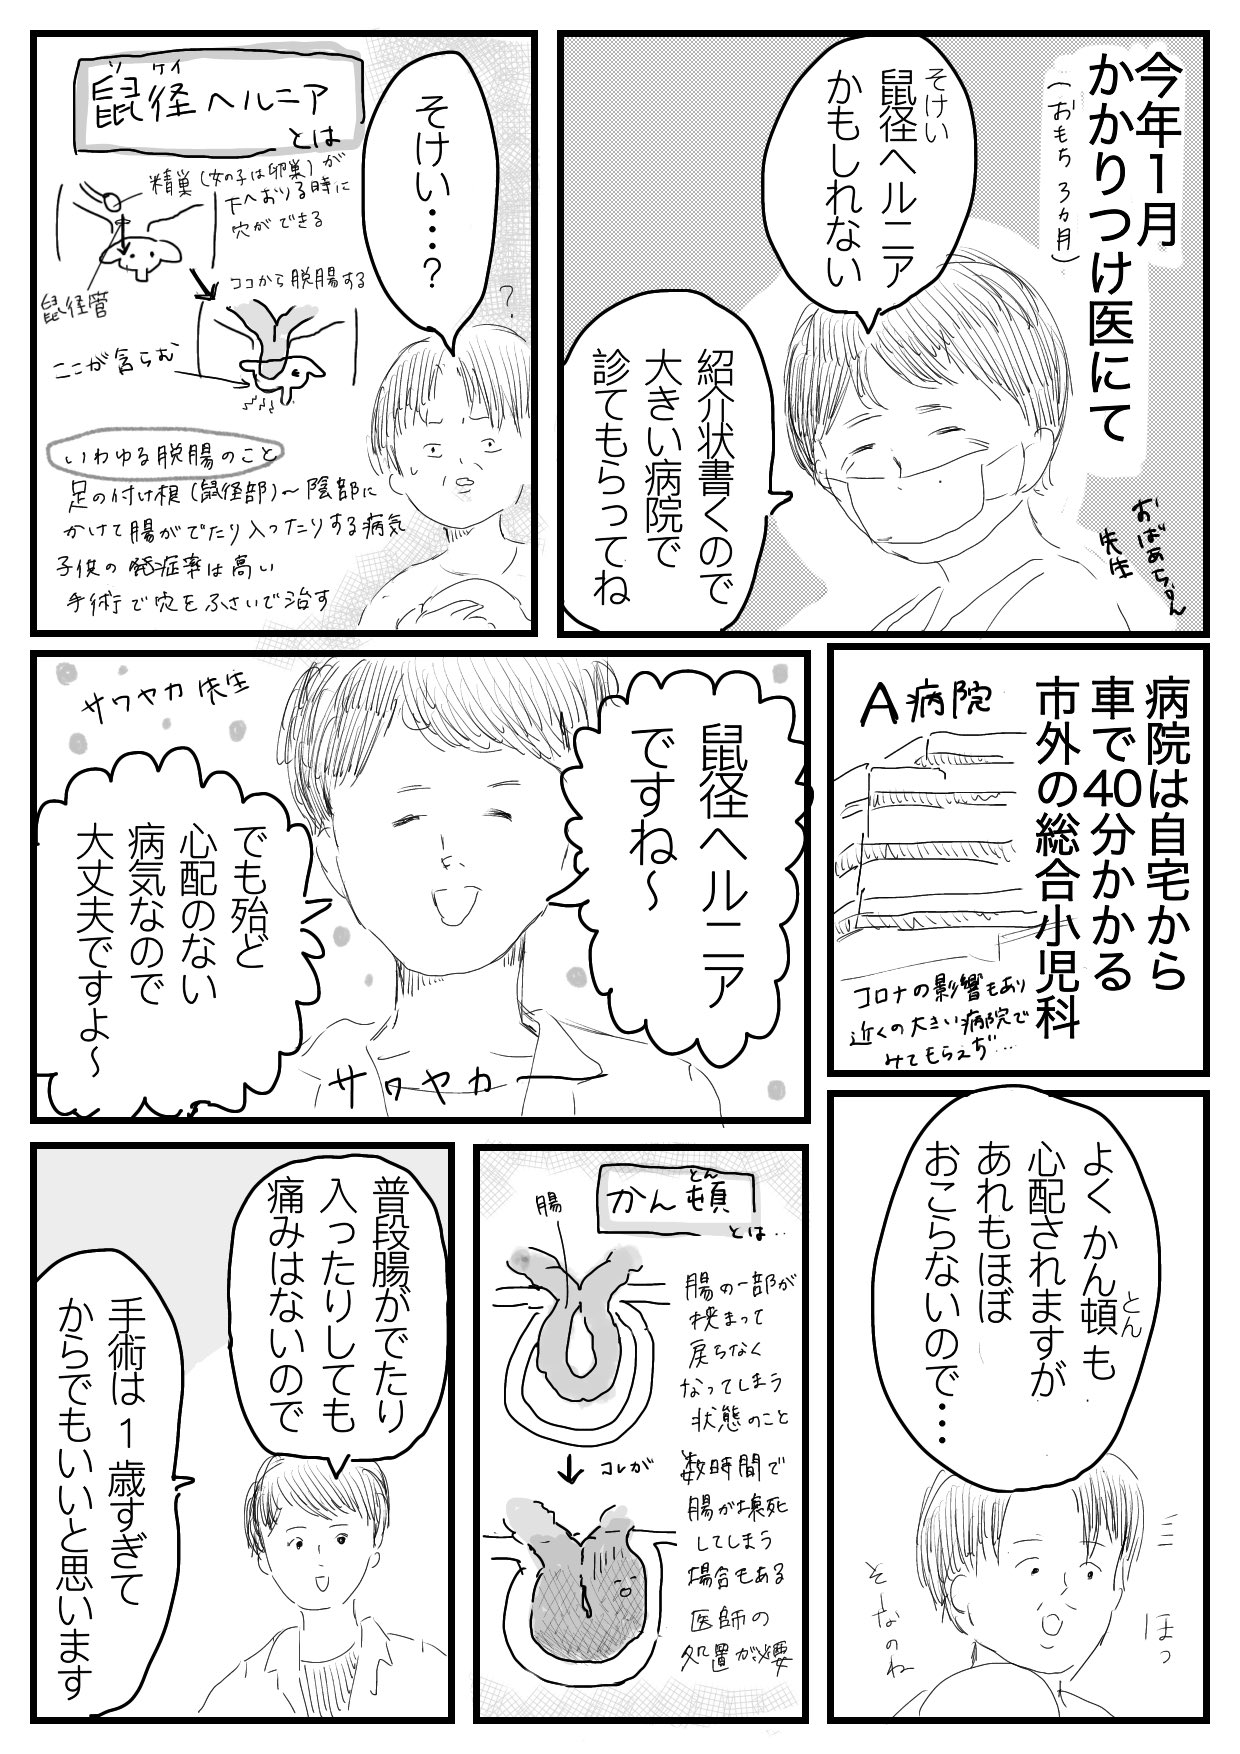 今年1月
かかりつけ医にて
(おもち3ヵ月)
そけい
鼠径ヘルニア
かもしれない
紹介状書くので
大きい病院で
診てもらってね
おばあちゃん
先生
そけい……?
?
ソケイ
鼠径ヘルニア
とは
精巣(女の子は卵巣)が
下へおりる時に
穴ができる
鼠径管
ココから脱腸する
ここが膨らむ
いわゆる脱腸のこと
足の付け根(鼠径部)〜陰部に
かけて腸がでたり入ったりする病気
子供の発症率は高い
手術で穴をふさいで治す
病院は自宅から
車で40分かかる
市外の総合小児科
A病院
コロナの影響もあり
近くの大きい病院で
みてもらえず…
鼠径ヘルニア
ですね〜
サワヤカ先生
でも殆ど
心配のない
病気なので
大丈夫ですよ〜
サワヤカー
よくかん頓も
とん
心配されますが
あれもほぼ
おこらないので….
ほっ
そーなのね
かん頓
とん
とは..
腸
腸の一部が
挟まって
戻らなく
なってしまう
状態のこと
コレが
数時間で
腸が壊死
してしまう
場合もある
医師の
処置が必要
普段腸がでたり
入ったりしても
痛みはないので
手術は1歳すぎて
からでもいいと思います